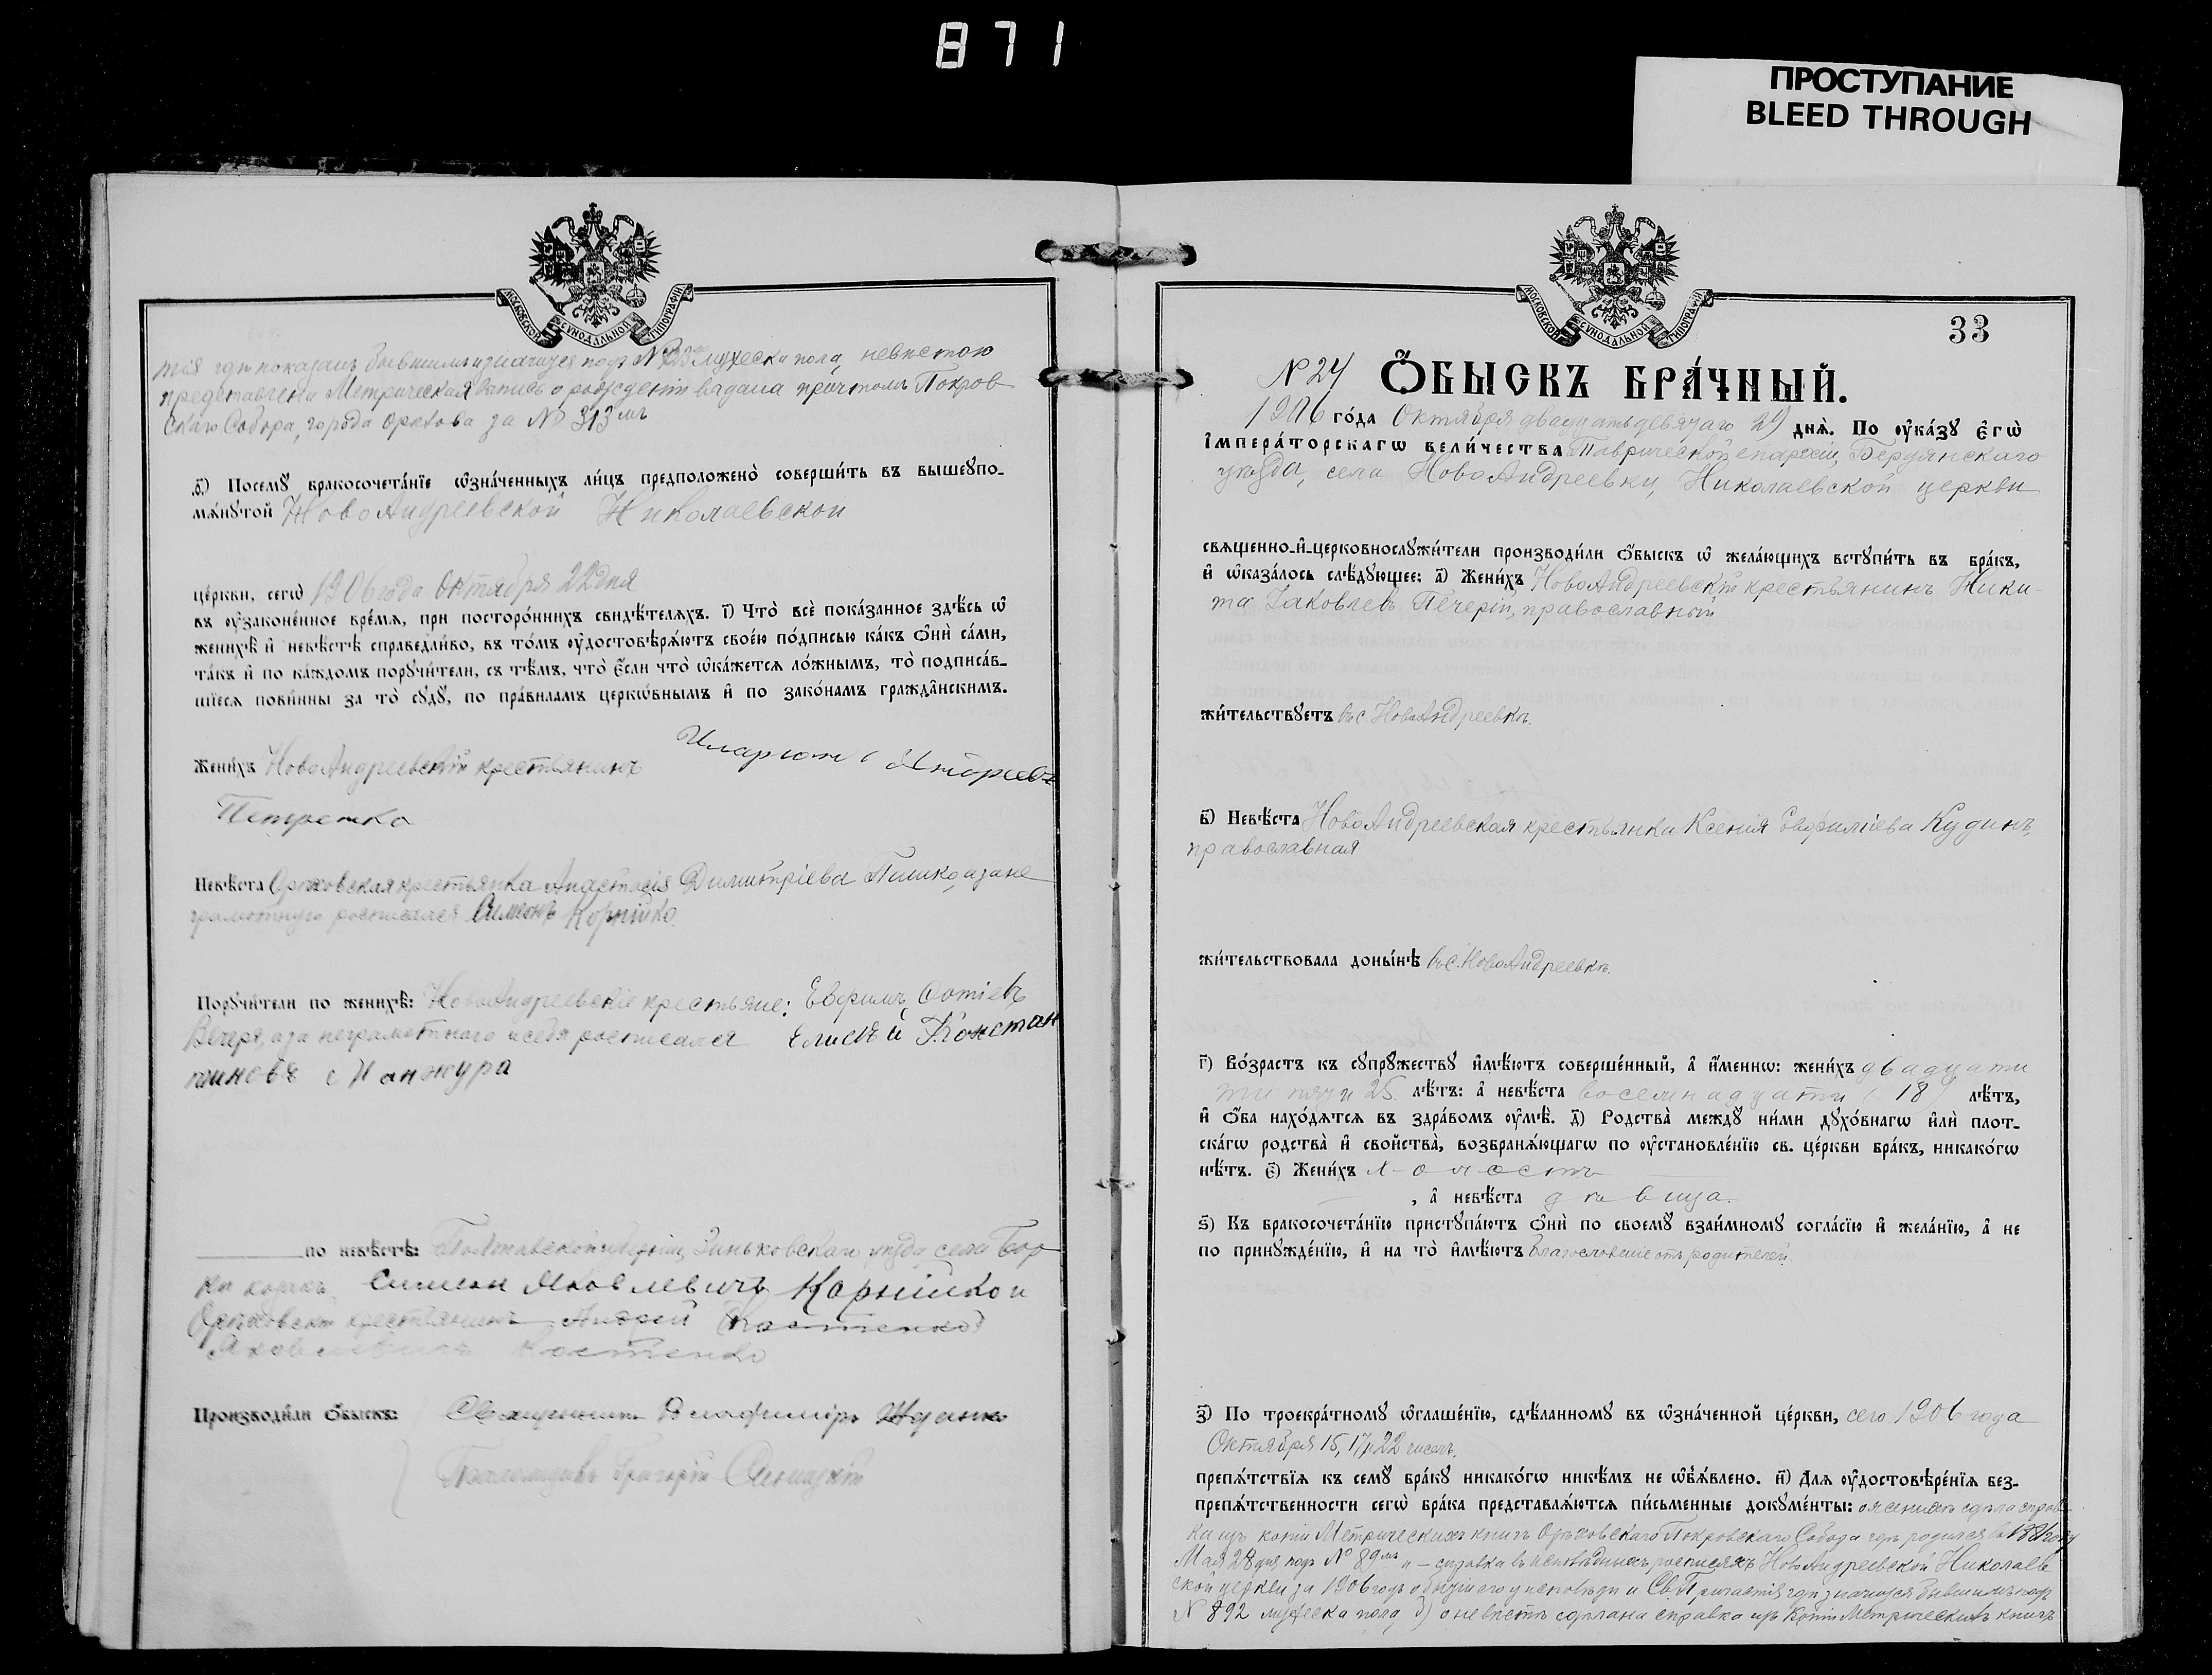 871
ПРОСТУПАНИЕ
BLEED THROUGH
МОСКОВСКОЙ СѴНОДАЛЬНОЙ ТИПОГРАФІИ
тія гдѣ показанъ бывшимъ и значится подъ № мужеска пола, невѣстою
представлена Метрическая выпись о рожденіи выдана причтомъ Покров-
скаго Собора, города Орѣхова за № 313мъ
в҃) Посемꙋ̀ бракосочета́нїе ѡ҆зна́ченныхъ ли́цъ предположено̀ соверши́ть въ вышеꙋпо-
мѧ́нꙋтой НовоАндреевской Николаевской
це́ркви, сегѡ̀ 1906 года Октября 22 дня
въ ᲂу҆зако́ненное вре́мѧ, при посторо́ннихъ свидѣ́телѧхъ. г҃і) Что̀ всѐ пока́занное здѣ́сь ѡ҆
женихѣ̀ и҆ невѣ́стѣ справедли́во, въ то́мъ ᲂу҆достовѣрѧ́ютъ свое́ю по́дписью ка́къ ѻ҆нѝ са́ми,
та́къ и҆ по ка́ждомъ порꙋчи́тели, съ тѣ́мъ, что̀ є҆́сли что̀ ѡ҆ка́жетсѧ ло́жнымъ, то̀ подписа́в-
шїесѧ пови́нны за то̀ сꙋдꙋ̀, по пра́виламъ церкѡ́внымъ и҆ по зако́намъ гражда́нскимъ.
Жени́хъ НовоАндреевскій крестьянинъ Иларіонъ Андреевъ
Петренко
Невѣ́ста Орѣховская крестьянка Анастасія Димитріева Пишко, а за не
грамотную росписался Симеонъ Корнійко.
Порꙋчи́тели по женихѣ̀: НовоАндреевскіе крестьяне: Евфимъ Фотіевъ
Вечеря, а за неграмотнаго и себя росписался Елисѣй Констан
тиновъ Манжура
по невѣ́стѣ: Полтавской губерніи, Зиньковскаго уѣзда, села Бор-
ки козакъ Симеон Яковлевичъ Корнійко и
Орѣховскій крестьянинъ Андрей Костенко
Яковлевичъ Костенко
Производи́ли ѻ҆́быскъ: Священникъ Владиміръ
Псаломщикъ Григорій
МОСКОВСКОЙ СѴНОДАЛЬНОЙ ТИПОГРАФІИ
33
№ 24 Ѻ҆́БЫСКЪ БРА́ЧНЫЙ.
1906 го́да Октября двадцать девятаго 29 днѧ̀. По ᲂу҆ка́зꙋ Є҆гѡ̀
І҆мпера́торскагѡ вели́чества Таврической епархіи, Бердянскаго
уѣзда, села НовоАндреевки, Николаевской церкви
свѧще́нно-и҆-церковнослꙋжи́тели производи́ли ѻ҆́быскъ ѡ҆ жела́ющихъ встꙋпи́ть въ бра́къ,
и҆ ѡ҆каза́лось слѣ́дꙋющее: а҃) Жени́хъ НовоАндреевскій крестьянинъ Ники-
та Іаковлевъ Печерій, православный
жи́тельствꙋетъ въ с. НовоАндреевкѣ.
в҃) Невѣ́ста НовоАндреевская крестьянка Ксенія Евфиміева Кудинъ,
православная
жи́тельствовала доны́нѣ въ с. НовоАндреевкѣ.
г҃) Во́зрастъ къ сꙋпрꙋ́жествꙋ и҆мѣ́ютъ соверше́нный, а҆ и҆́меннѡ: жени́хъ двадцати
ти пяти 25. лѣ́тъ: а҆ невѣ́ста восемнадцати (18) лѣ́тъ,
и҆ ѻ҆́ба нахо́дѧтсѧ въ здра́вомъ ᲂу҆мѣ̀. д҃) Родства̀ междꙋ̀ ни́ми дꙋхо́внагѡ и҆лѝ плот-
ска́гѡ родства̀ и҆ свойства̀, возбранѧ́ющагѡ по ᲂу҆становле́нїю св. це́ркви бра́къ, никако́гѡ
нѣ́тъ. є҃) Жени́хъ холостъ
, а҆ невѣ́ста дѣвица.
ѕ҃) Къ бракосочета́нїю пристꙋпа́ютъ ѻ҆нѝ по своемꙋ̀ взаи́мномꙋ согла́сїю и҆ жела́нїю, а҆ не
по принꙋжде́нїю, и҆ на то̀ и҆мѣ́ютъ благословеніе отъ родителей.
з҃) По троекра́тномꙋ ѡ҆глаше́нїю, сдѣ́ланномꙋ въ ѡ҆зна́ченной це́ркви, сего 1906 года
Октября 15, 17 и 22 чиселъ.
препѧ́тствїѧ къ семꙋ̀ бра́кꙋ никако́гѡ никѣ́мъ не ѡ҆б̾ѧ́влено. и҃) Длѧ ᲂу҆достовѣре́нїѧ без-
препѧ́тственности сегѡ̀ бра́ка представлѧ́ютсѧ пи́сьменные докꙋме́нты: о женихѣ сдѣла справ-
ка изъ копіи Метрическихъ книгъ Орѣховскаго Покровскаго Собора гдѣ родился въ 1881 году
Мая 28 дня подъ № 89мъ и – справка въ исповѣдныхъ росписяхъ НовоАндреевской Николаев
ской церкви за 1906 годъ о бытіи его у исповѣди и Св. Причастія гдѣ значится бывшимъ подъ
№ 892 мужеска пола, б) о невѣстѣ сдѣлана справка изъ копіи Метрическихъ книгъ